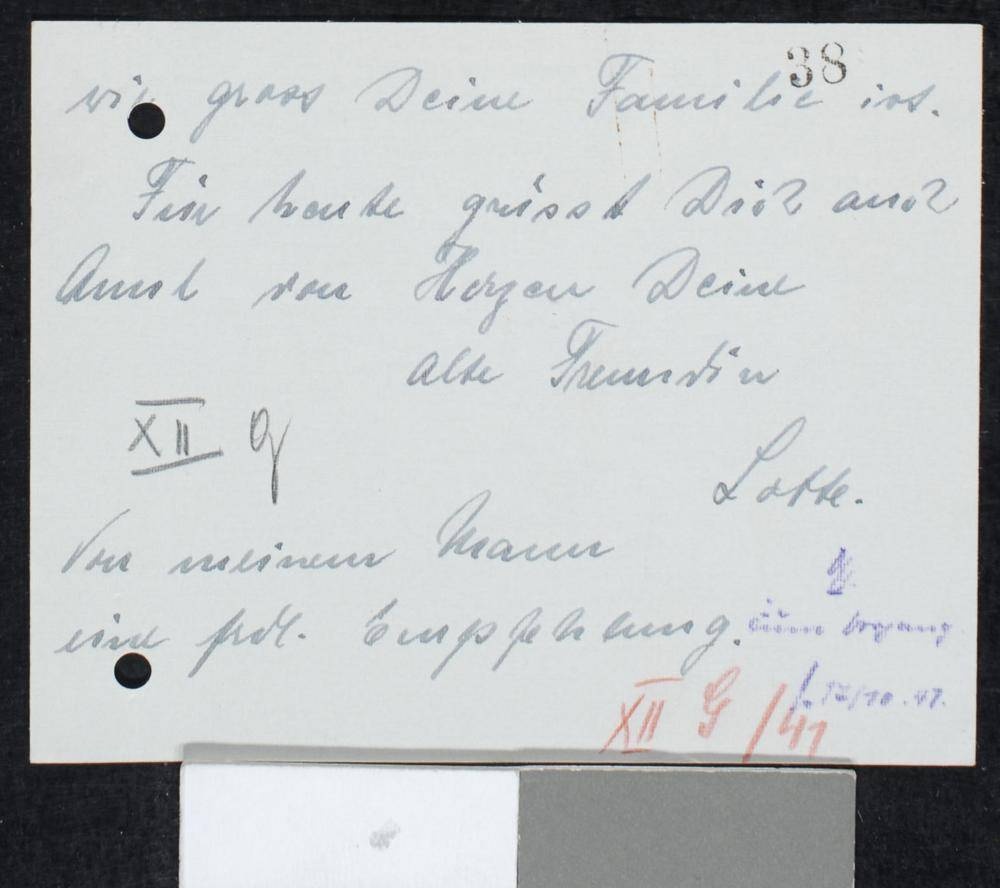 38
wie gross Deine Familie ist.
Für heute grüsst Dich auch
von Herzen Deine
alte Freundin
XII g
Lotte.
Von meinem Mann
eine frdl. Empfehlung.
zum Vorgang
17/10.41.
XII G /41